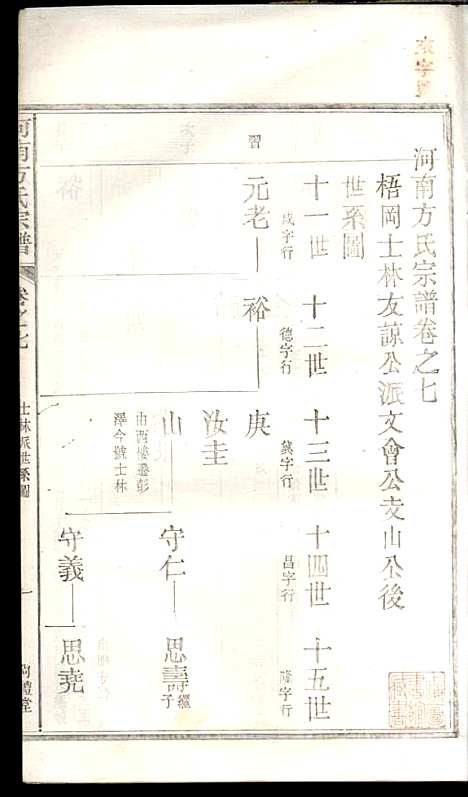 河南方氏宗譜卷之七
梧岡士林友諒公派文會公支山公後
世系圖
十一世 十二世 十三世 十四世 十五世
成字行 德字行 字行 昌字行 隆字行
習
元老 裕 庚
汝圭
山 守仁 思壽 繼子
由西樓遷彭
澤今號士林
守義 思堯
河南方氏宗譜 卷之七 士林派世系圖 一